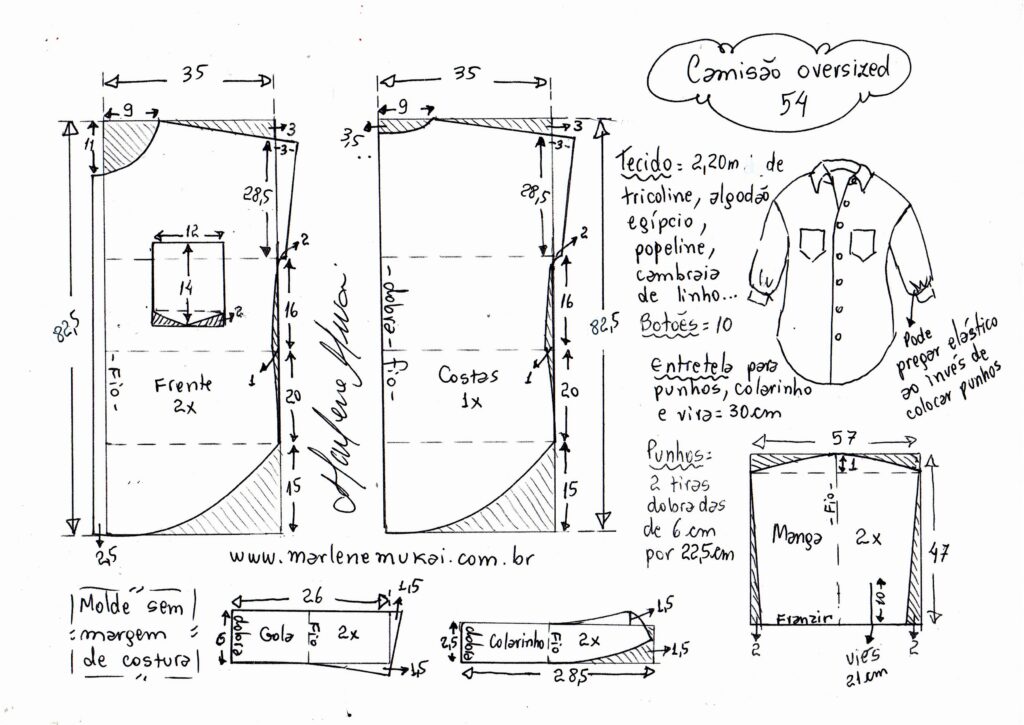 Camisão oversized
54
35
9
11
3
3
28,5
2
12
14
2
82,5
16
1
20
15
Fio
Frente
2x
2,5
Marlene Mukai
35
9
3,5
3
3
28,5
2
dobra - fio
16
82,5
1
Costas
1x
20
15
www.marlenemukai.com.br
Tecido = 2,20m de
tricoline, algodão
egípcio,
popeline,
cambraia
de linho...
Botões = 10
Entretela para
punhos, colarinho
e vira = 30cm
Pode
pregar elástico
ao invés de
colocar punhos
Punhos =
2 tiras
dobradas
de 6cm
por 22,5cm
57
1
Fio
Manga 2x
47
10
Franzir
2
2
viés
21cm
Molde sem
margem
de costura
26
1,5
6
dobra
Gola
Fio
2x
1,5
2,5
dobra
Colarinho
Fio
2x
1,5
1,5
28,5